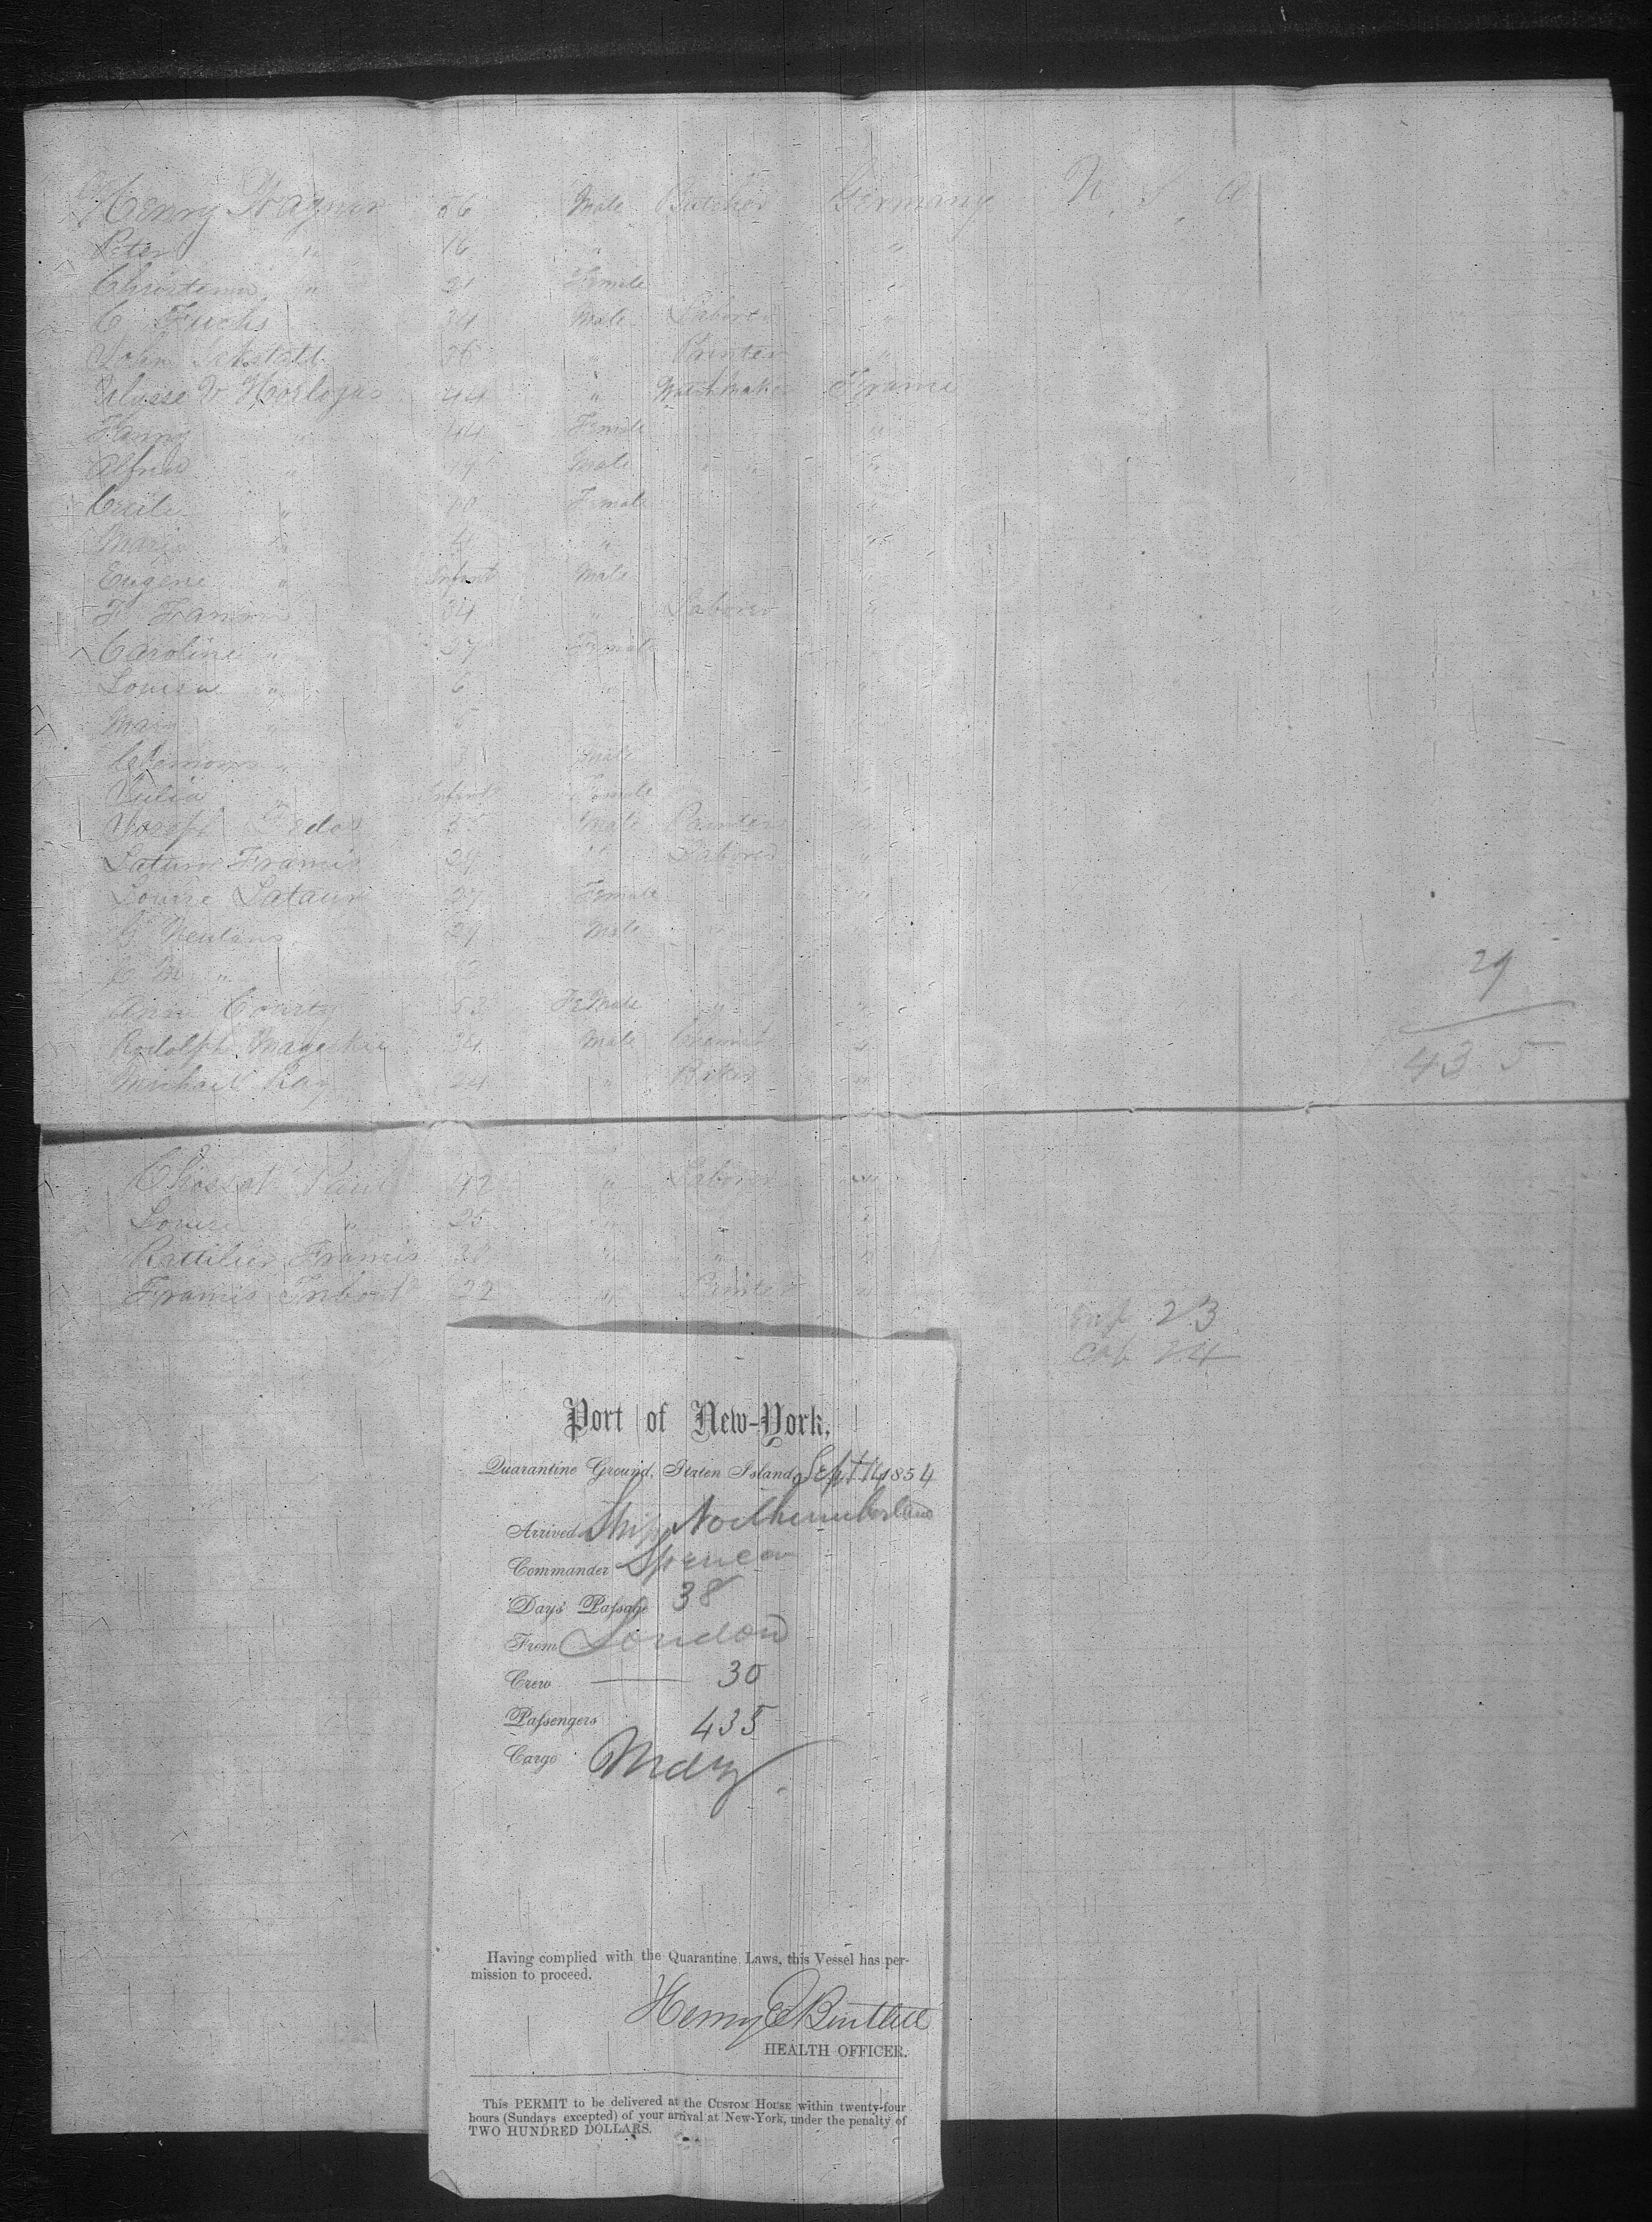 Henry Wagner 56 Male Butcher Germany U. S. A
Peter " 16 " "
Christenna " 21 Female "
C. Fuchs 34 Male Laborer "
John 36 " Printer "
Ulysse V. Horlojas 44 " Watch Maker France
Fanny " 44 Female "
Alfred " 19 Male " "
Cecile " 10 Female "
Marie " 4 " "
Eugene " Infant Male "
F. 34 " Laborer "
Caroline " 27 Female
Louisa " 6 " "
Mary " 5
" 3 Male
Julia " Infant Female "
Joseph Male Painter "
Latour Francis 29 " Laborer "
Louise Latour 27 Female "
G. 29 Male " "
C. M. "
Ann Courty 53 Female " "
29
Rodolph 34 Male "
Michael Ray 24 " Baker "
435
Paul 42 " Laborer "
Louise " 25 " "
Francis " " "
Francis 22 " Printer "
23
24
Port of New-York,
Quarantine Ground, Staten Island, Sept 14 1854
Arrived Ship Northumberland
Commander Spencer
Days' Passage 38
From London
Crew 30
Passengers 435
Cargo Mdz
Having complied with the Quarantine Laws, this Vessel has per-
mission to proceed.
Henry
HEALTH OFFICER.
This PERMIT to be delivered at the CUSTOM HOUSE within twenty-four
hours (Sundays excepted) of your arrival at New-York, under the penalty of
TWO HUNDRED DOLLARS.